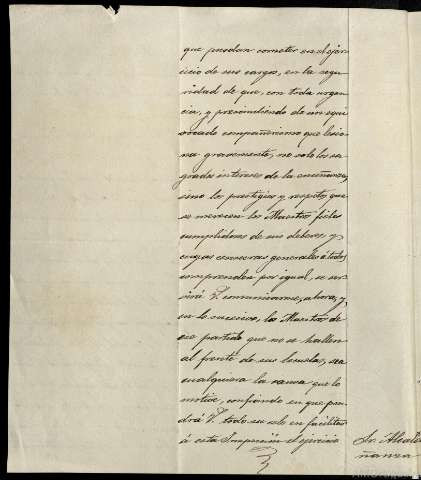 que puedan cometer en el ejer-
cicio de sus cargos, en la segu-
ridad de que, con toda urgen-
cia, y prescindiendo de un equi-
vocado compañerismo que lesio-
na gravemente, no solo los sa-
grados intereses de la enseñanza,
sino los prestigios y respetos que
se merecen los Maestros fieles
cumplidores de sus deberes, y
cuyas censuras generales á todos
comprenden por igual, se ser-
virá V. comunicarme, ahora, y
en lo sucesivo, los Maestros de
ese partido que no se hallen
al frente de sus Escuelas, sea
cualquiera la causa que lo
motive, confiando en que pon-
drá V. todo su celo en facilitar
á esta Inspección el ejercicio
Sr. Alcal
ñanza